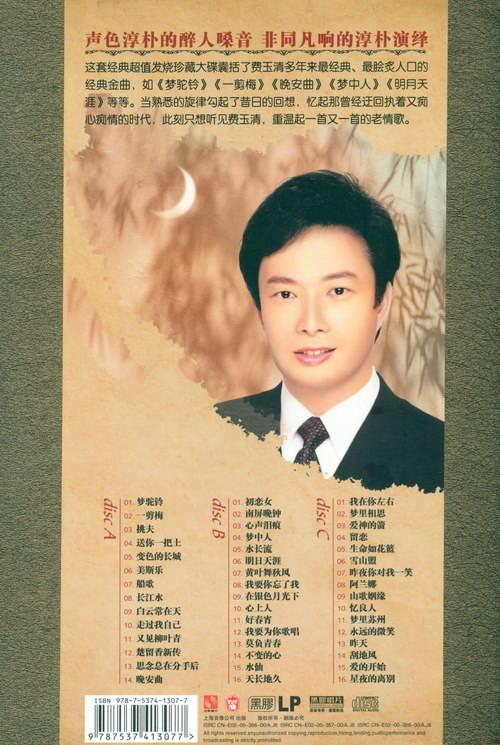 声色淳朴的醉人嗓音 非同凡响的淳朴演绎
这套经典超值发烧珍藏大碟囊括了费玉清多年来最经典、最脍炙人口的
经典金曲，如《梦驼铃》《一剪梅》《晚安曲》《梦中人》《明月天
涯》等等。当熟悉的旋律勾起了昔日的回想，忆起那曾经迂回执着又痴
心痴情的时代，此刻只想听见费玉清，重温起一首又一首的老情歌。
disc A
01. 梦驼铃
02. 一剪梅
03. 挑夫
04. 送你一把土
05. 变色的长城
06. 美斯乐
07. 船歌
08. 长江水
09. 白云常在天
10. 走过我自己
11. 又见柳叶青
12. 楚留香新传
13. 思念总在分手后
14. 晚安曲
disc B
01. 初恋女
02. 南屏晚钟
03. 心声泪痕
04. 梦中人
05. 水长流
06. 明日天涯
07. 黄叶舞秋风
08. 我要你忘了我
09. 在银色月光下
10. 心上人
11. 好春宵
12. 我要为你歌唱
13. 莫负青春
14. 不变的心
15. 水仙
16. 天长地久
disc C
01. 我在你左右
02. 梦里相思
03. 爱神的箭
04. 留恋
05. 生命如花篮
06. 雪山盟
07. 昨夜你对我一笑
08. 阿兰娜
09. 山歌姻缘
10. 忆良人
11. 梦里苏州
12. 永远的微笑
13. 昨天
14. 刮地风
15. 爱的开始
16. 星夜的离别
ISBN 978-7-5374-1307-7
9 787537 413077 >
黑膠 LP
上海音像公司 出版 版权所有·翻版必究
All rights of reserved.anyunauthorized copying,reproduction,hiring,lending,public,performance and
broadcasting is strictly prohibited